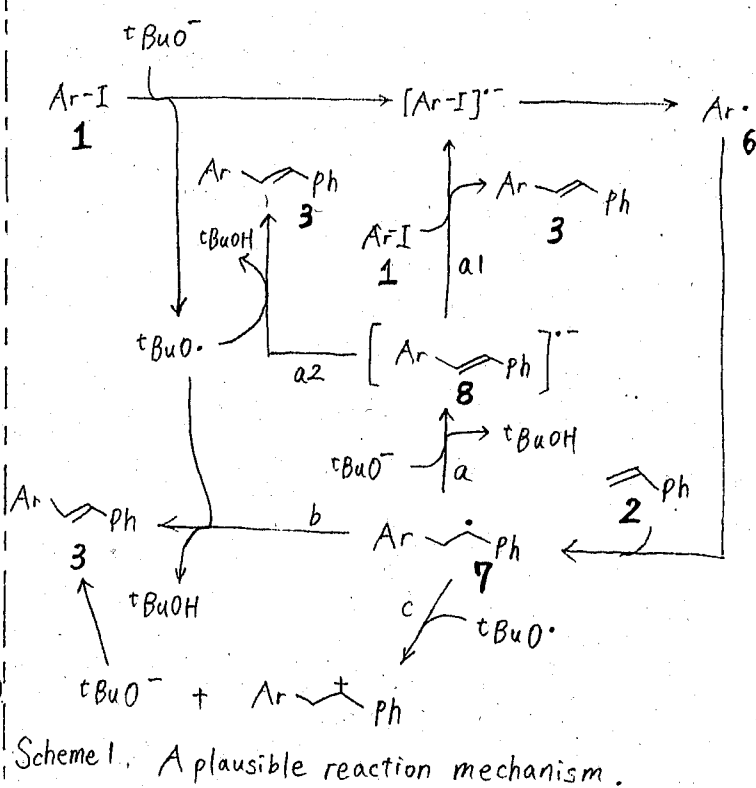 ᵗBuO⁻
Ar-I
[Ar-I]•⁻
Ar•
1
6
Ar Ph
Ar Ph
3
3
ᵗBuOH
Ar-I
1
a1
ᵗBuO•
[Ar Ph]•⁻
a2
8
ᵗBuOH
ᵗBuO⁻
a
Ph
2
Ar Ph
b
Ar Ph
3
7
ᵗBuOH
c
ᵗBuO•
ᵗBuO⁻ + Ar + Ph
Scheme 1. A plausible reaction mechanism.